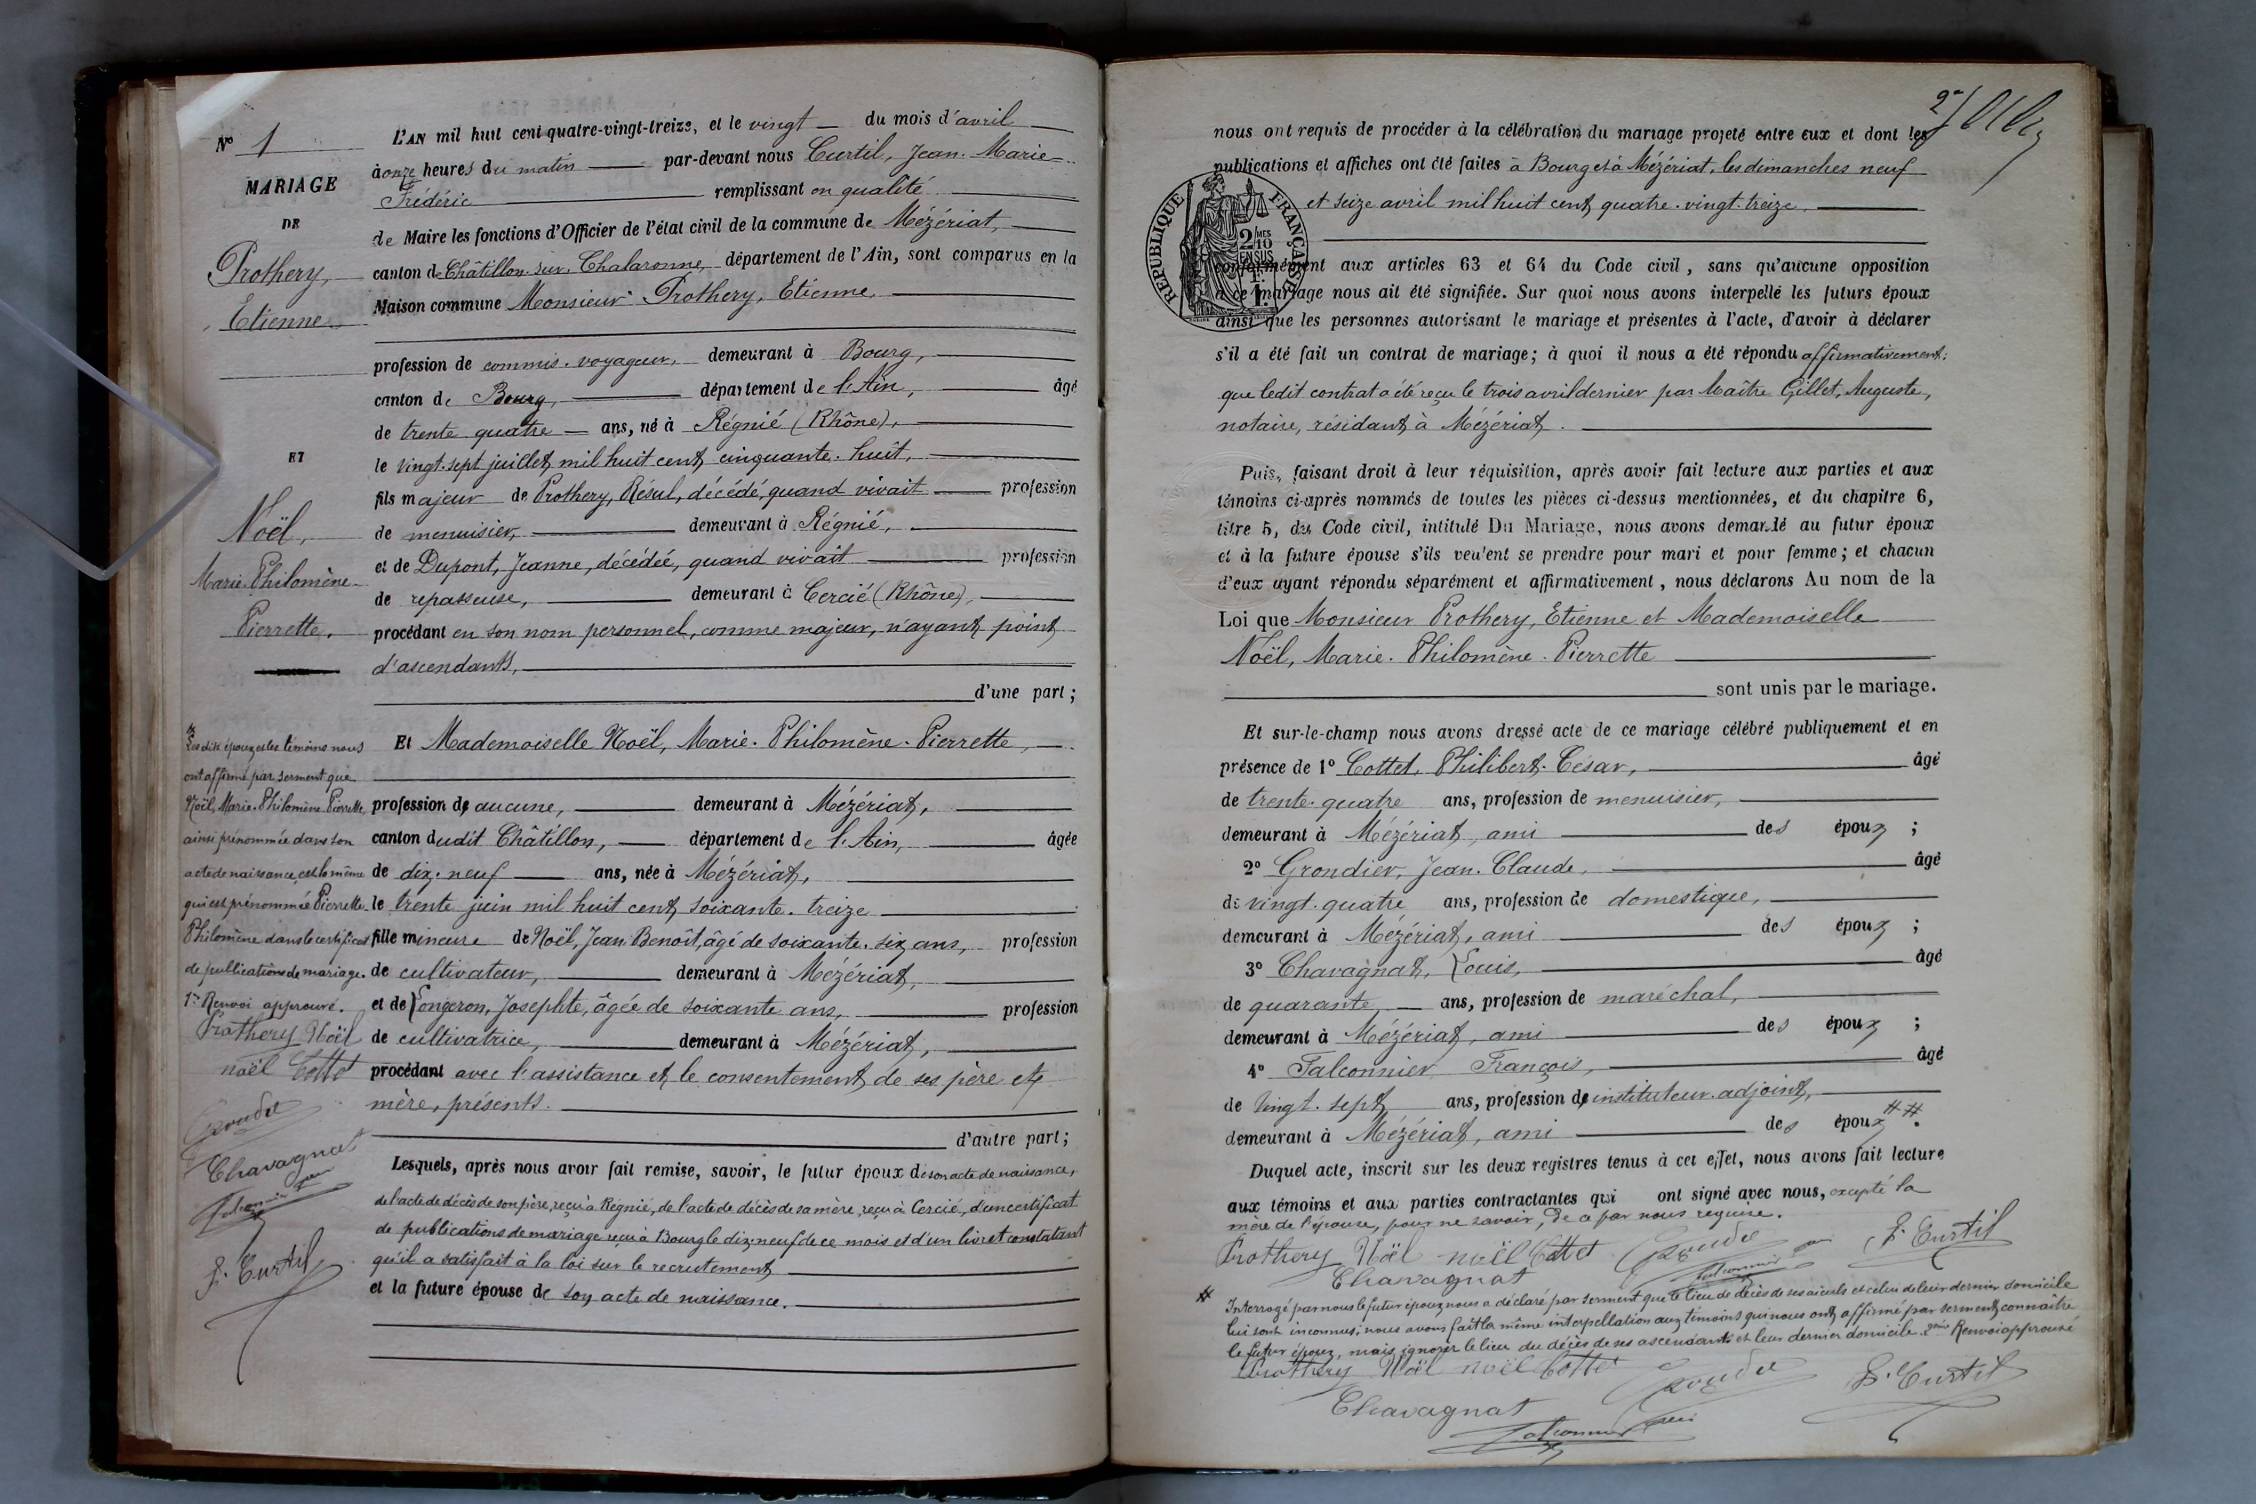 Nº 1
MARIAGE
DE
Prothery,
Etienne.
ET
Noël,
Marie-Philomène-
Pierrette.
L'AN mil huit cent quatre-vingt-treize, et le vingt du mois d'avril
à onze heures du matin par-devant nous Curtil, Jean-Marie-
Frédéric remplissant en qualité
de Maire les fonctions d'Officier de l'état civil de la commune de Mézériat,
canton de Châtillon-sur-Chalaronne, département de l'Ain, sont comparus en la
Maison commune Monsieur Prothery, Etienne,
profession de commis-voyageur, demeurant à Bourg,
canton de Bourg, département de l'Ain, âgé
de trente-quatre ans, né à Régnié (Rhône),
le vingt-sept juillet mil huit cent cinquante-huit,
fils majeur de Prothery, Résul, décédé, quand vivait profession
de menuisier, demeurant à Régnié,
et de Dupont, Jeanne, décédée, quand vivait profession
de repasseuse, demeurant à Cercié (Rhône),
procédant en son nom personnel, comme majeur, n'ayant point
d'ascendants,
d'une part ;
Et Mademoiselle Noël, Marie-Philomène-Pierrette,
profession de aucune, demeurant à Mézériat,
canton dudit Châtillon, département de l'Ain, âgée
de dix-neuf ans, née à Mézériat,
le trente juin mil huit cent soixante-treize
fille mineure de Noël, Jean-Benoît, âgé de soixante-six ans, profession
de cultivateur, demeurant à Mézériat,
et de Longeron, Josephte, âgée de soixante ans, profession
de cultivatrice, demeurant à Mézériat,
procédant avec l'assistance et le consentement de ses père et
mère, présents.
d'autre part ;
Lesquels, après nous avoir fait remise, savoir, le futur époux de son acte de naissance,
de l'acte de décès de son père, reçu à Régnié, de l'acte de décès de sa mère, reçu à Cercié, d'un certificat
de publications de mariage reçu à Bourg le dix-neuf de ce mois et d'un livret constatant
qu'il a satisfait à la loi sur le recrutement
et la future épouse de son acte de naissance.
Lesdits époux et les témoins nous
ont affirmé par serment que
Noël, Marie-Philomène-Pierrette,
ainsi prénommée dans son
acte de naissance, est la même
qui est prénommée Pierrette-
Philomène dans le certificat
de publications de mariage.
1er Renvoi approuvé.
Prothery Noël
noël Cottet
Chavagnat
Falconnier
F. Curtil
2e
nous ont requis de procéder à la célébration du mariage projeté entre eux et dont les
publications et affiches ont été faites à Bourg et à Mézériat, les dimanches neuf
et seize avril mil huit cent quatre-vingt-treize,
RÉPUBLIQUE FRANÇAISE
2/10 MES
EN SUS
1 F.
conformément aux articles 63 et 64 du Code civil, sans qu'aucune opposition
à ce mariage nous ait été signifiée. Sur quoi nous avons interpellé les futurs époux
ainsi que les personnes autorisant le mariage et présentes à l'acte, d'avoir à déclarer
s'il a été fait un contrat de mariage ; à quoi il nous a été répondu affirmativement :
que ledit contrat a été reçu le trois avril dernier par Maître Gillet, Auguste,
notaire, résidant à Mézériat.
Puis, faisant droit à leur réquisition, après avoir fait lecture aux parties et aux
témoins ci-après nommés de toutes les pièces ci-dessus mentionnées, et du chapitre 6,
titre 5, du Code civil, intitulé Du Mariage, nous avons demandé au futur époux
et à la future épouse s'ils veulent se prendre pour mari et pour femme ; et chacun
d'eux ayant répondu séparément et affirmativement, nous déclarons Au nom de la
Loi que Monsieur Prothery, Etienne et Mademoiselle
Noël, Marie-Philomène-Pierrette
sont unis par le mariage.
Et sur-le-champ nous avons dressé acte de ce mariage célébré publiquement et en
présence de 1º Cottet, Philibert-César, âgé
de trente-quatre ans, profession de menuisier,
demeurant à Mézériat, ami des époux ;
2º Grondier, Jean-Claude, âgé
de vingt-quatre ans, profession de domestique,
demeurant à Mézériat, ami des époux ;
3º Chavagnat, Louis, âgé
de quarante ans, profession de maréchal,
demeurant à Mézériat, ami des époux ;
4º Falconnier François, âgé
de vingt-sept ans, profession de instituteur-adjoint,
demeurant à Mézériat, ami des époux ##.
Duquel acte, inscrit sur les deux registres tenus à cet effet, nous avons fait lecture
aux témoins et aux parties contractantes qui ont signé avec nous, excepté la
mère de l'épouse, pour ne savoir, de ce par nous requise.
Prothery Noël noël Cottet F. Curtil
Chavagnat Falconnier
# Interrogé par nous le futur époux nous a déclaré par serment que le lieu de décès de ses aïeuls et celui de leur dernier domicile
lui sont inconnus ; nous avons fait la même interpellation aux témoins qui nous ont affirmé par serment connaître
le futur époux, mais ignorer le lieu du décès de ses ascendants et leur dernier domicile. 2ème Renvoi approuvé
Prothery Noël noël Cottet F. Curtil
Chavagnat
Falconnier